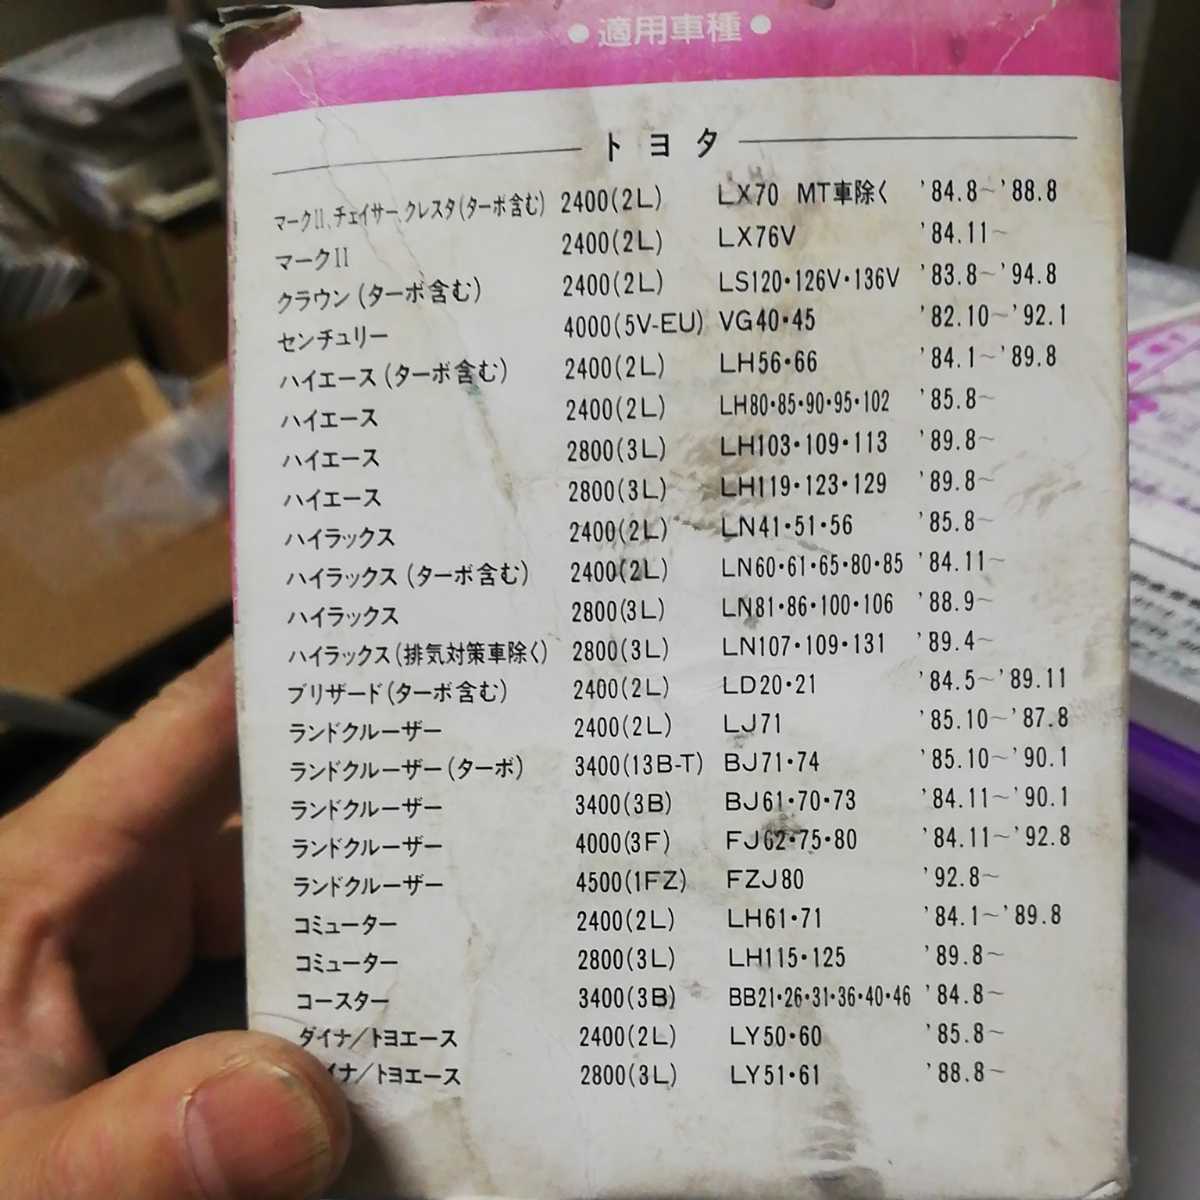 ●適用車種●
トヨタ
マークII、チェイサー、クレスタ(ターボ含む) 2400(2L) LX70 MT車除く '84.8~'88.8
マークII 2400(2L) LX76V '84.11~
クラウン(ターボ含む) 2400(2L) LS120・126V・136V '83.8~'94.8
センチュリー 4000(5V-EU) VG40・45 '82.10~'92.1
ハイエース(ターボ含む) 2400(2L) LH56・66 '84.1~'89.8
ハイエース 2400(2L) LH80・85・90・95・102 '85.8~
ハイエース 2800(3L) LH103・109・113 '89.8~
ハイエース 2800(3L) LH119・123・129 '89.8~
ハイラックス 2400(2L) LN41・51・56 '85.8~
ハイラックス(ターボ含む) 2400(2L) LN60・61・65・80・85 '84.11~
ハイラックス 2800(3L) LN81・86・100・106 '88.9~
ハイラックス(排気対策車除く) 2800(3L) LN107・109・131 '89.4~
ブリザード(ターボ含む) 2400(2L) LD20・21 '84.5~'89.11
ランドクルーザー 2400(2L) LJ71 '85.10~'87.8
ランドクルーザー(ターボ) 3400(13B-T) BJ71・74 '85.10~'90.1
ランドクルーザー 3400(3B) BJ61・70・73 '84.11~'90.1
ランドクルーザー 4000(3F) FJ62・75・80 '84.11~'92.8
ランドクルーザー 4500(1FZ) FZJ80 '92.8~
コミューター 2400(2L) LH61・71 '84.1~'89.8
コミューター 2800(3L) LH115・125 '89.8~
コースター 3400(3B) BB21・26・31・36・40・46 '84.8~
ダイナ/トヨエース 2400(2L) LY50・60 '85.8~
イナ/トヨエース 2800(3L) LY51・61 '88.8~